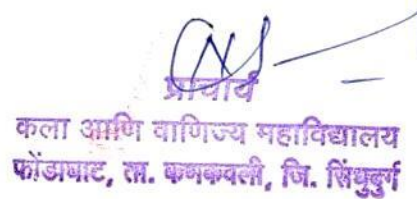 प्राचार्य
कला आणि वाणिज्य महाविद्यालय
फोंडाघाट, ता. कणकवली, जि. सिंधुदुर्ग